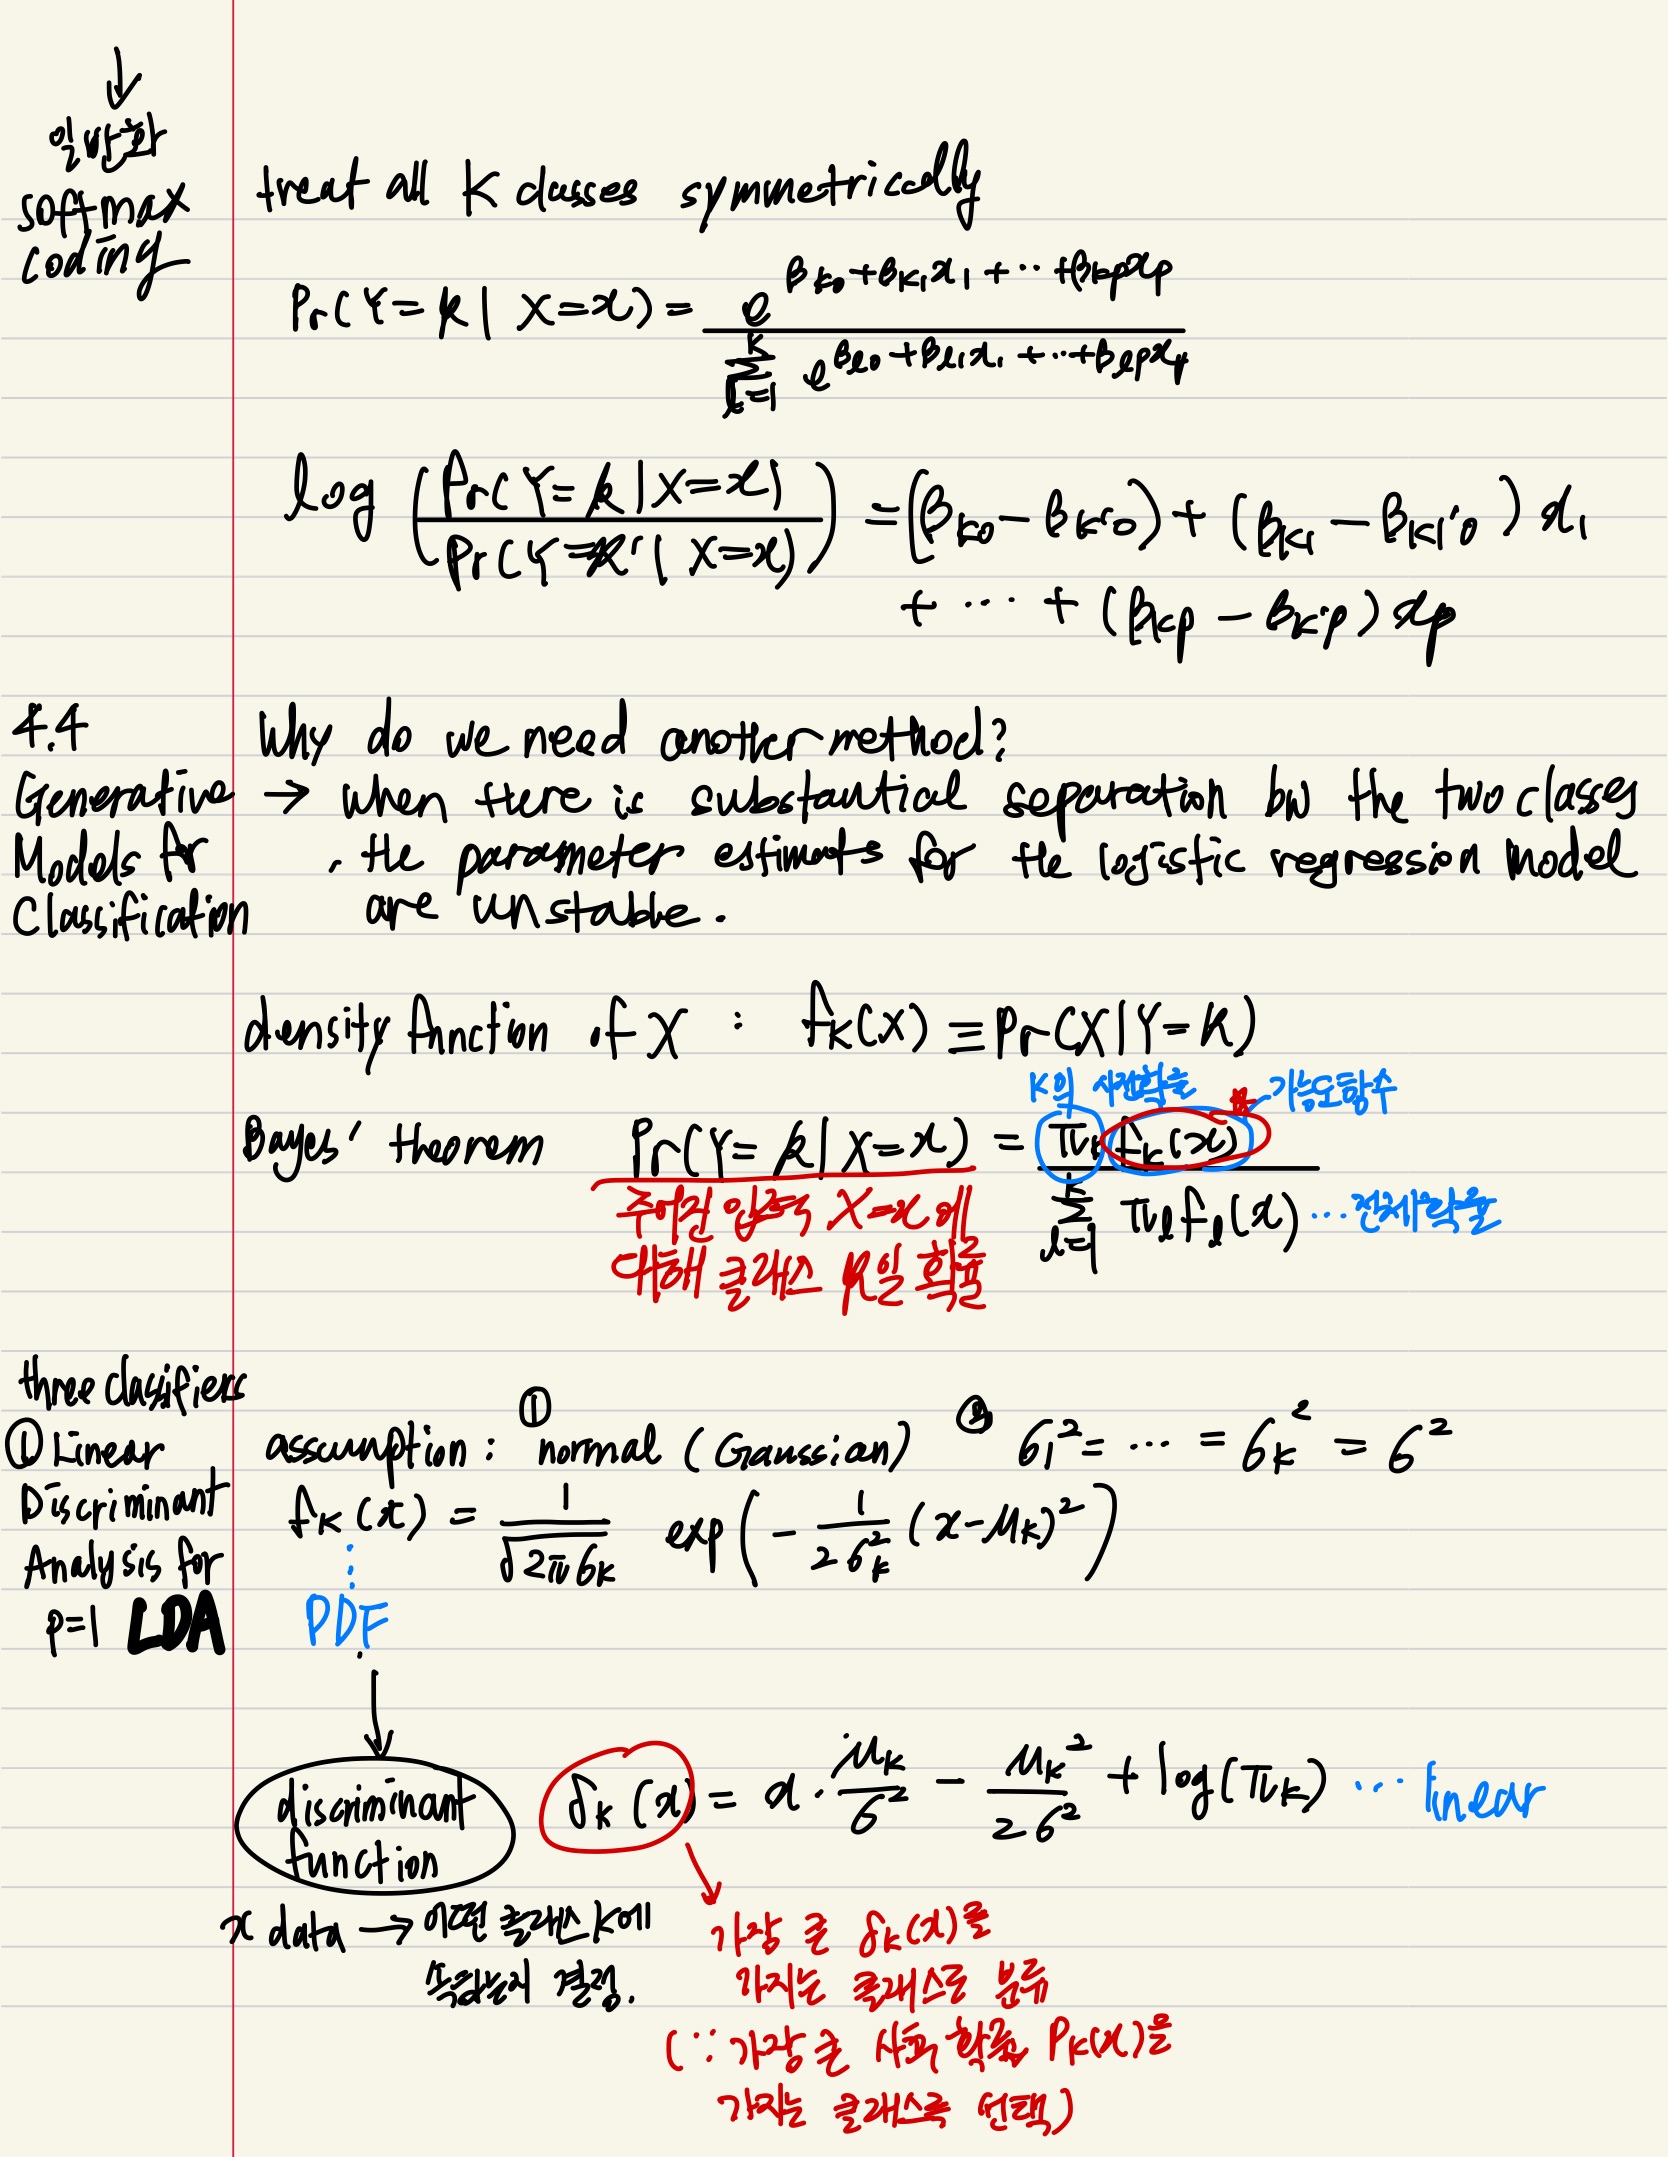 ↓
일반화
softmax
coding
treat all K classes symmetrically
Pr(Y=k | X=x) = e^{β_{k0}+β_{k1}x_1+⋯+β_{kp}x_p} / Σ_{l=1}^{K} e^{β_{l0}+β_{l1}x_1+⋯+β_{lp}x_p}
log ( Pr(Y=k | X=x) / Pr(Y=k' | X=x) ) = (β_{k0} − β_{k'0}) + (β_{k1} − β_{k1'0}) x_1
+ ⋯ + (β_{kp} − β_{k'p}) x_p
4.4
Generative
Models for
Classification
Why do we need another method?
→ when there is substantial separation bw the two classes
, the parameter estimates for the logistic regression model
are unstable.
density function of X : f_k(X) ≡ Pr(X | Y=k)
K의 사전확률
★ 가능도함수
Bayes' theorem Pr(Y=k | X=x) = π_k f_k(x) / Σ_{l=1}^{K} π_l f_l(x) ⋯ 전체확률
주어진 입력 X=x에
대해 클래스 k일 확률
three classifiers
① Linear
Discriminant
Analysis for
p=1 LDA
assumption: ① normal (Gaussian) ② σ_1^2 = ⋯ = σ_k^2 = σ^2
f_k(x) = 1 / √2π σ_k exp( − 1 / 2σ_k^2 (x−μ_k)^2 )
PDF
↓
discriminant
function
δ_k(x) = x · μ_k / σ^2 − μ_k^2 / 2σ^2 + log(π_k) ⋯ linear
x data → 어떤 클래스 k에
속하는지 결정.
가장 큰 δ_k(x)를
가지는 클래스로 분류
(∵ 가장 큰 사후 확률 P_k(x)을
가지는 클래스를 선택)